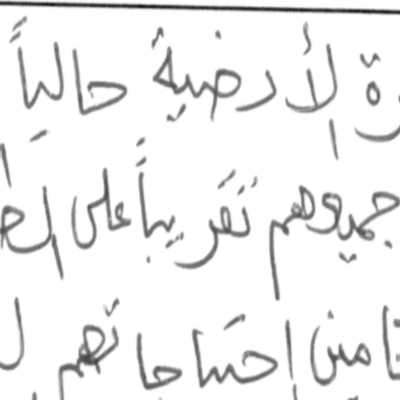 الأرضية حالياً
جميعهم تقريباً على
تأمين احتياجاتهم